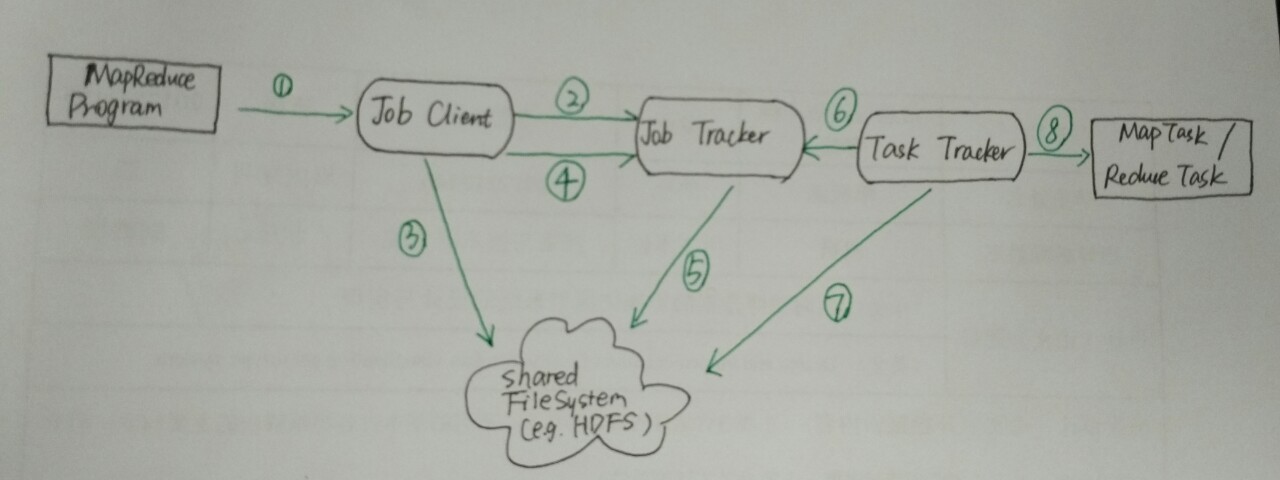 MapReduce
Program
①
Job Client
②
④
Job Tracker
⑥
Task Tracker
⑧
MapTask /
Reduce Task
③
⑤
⑦
shared
FileSystem
(e.g. HDFS)